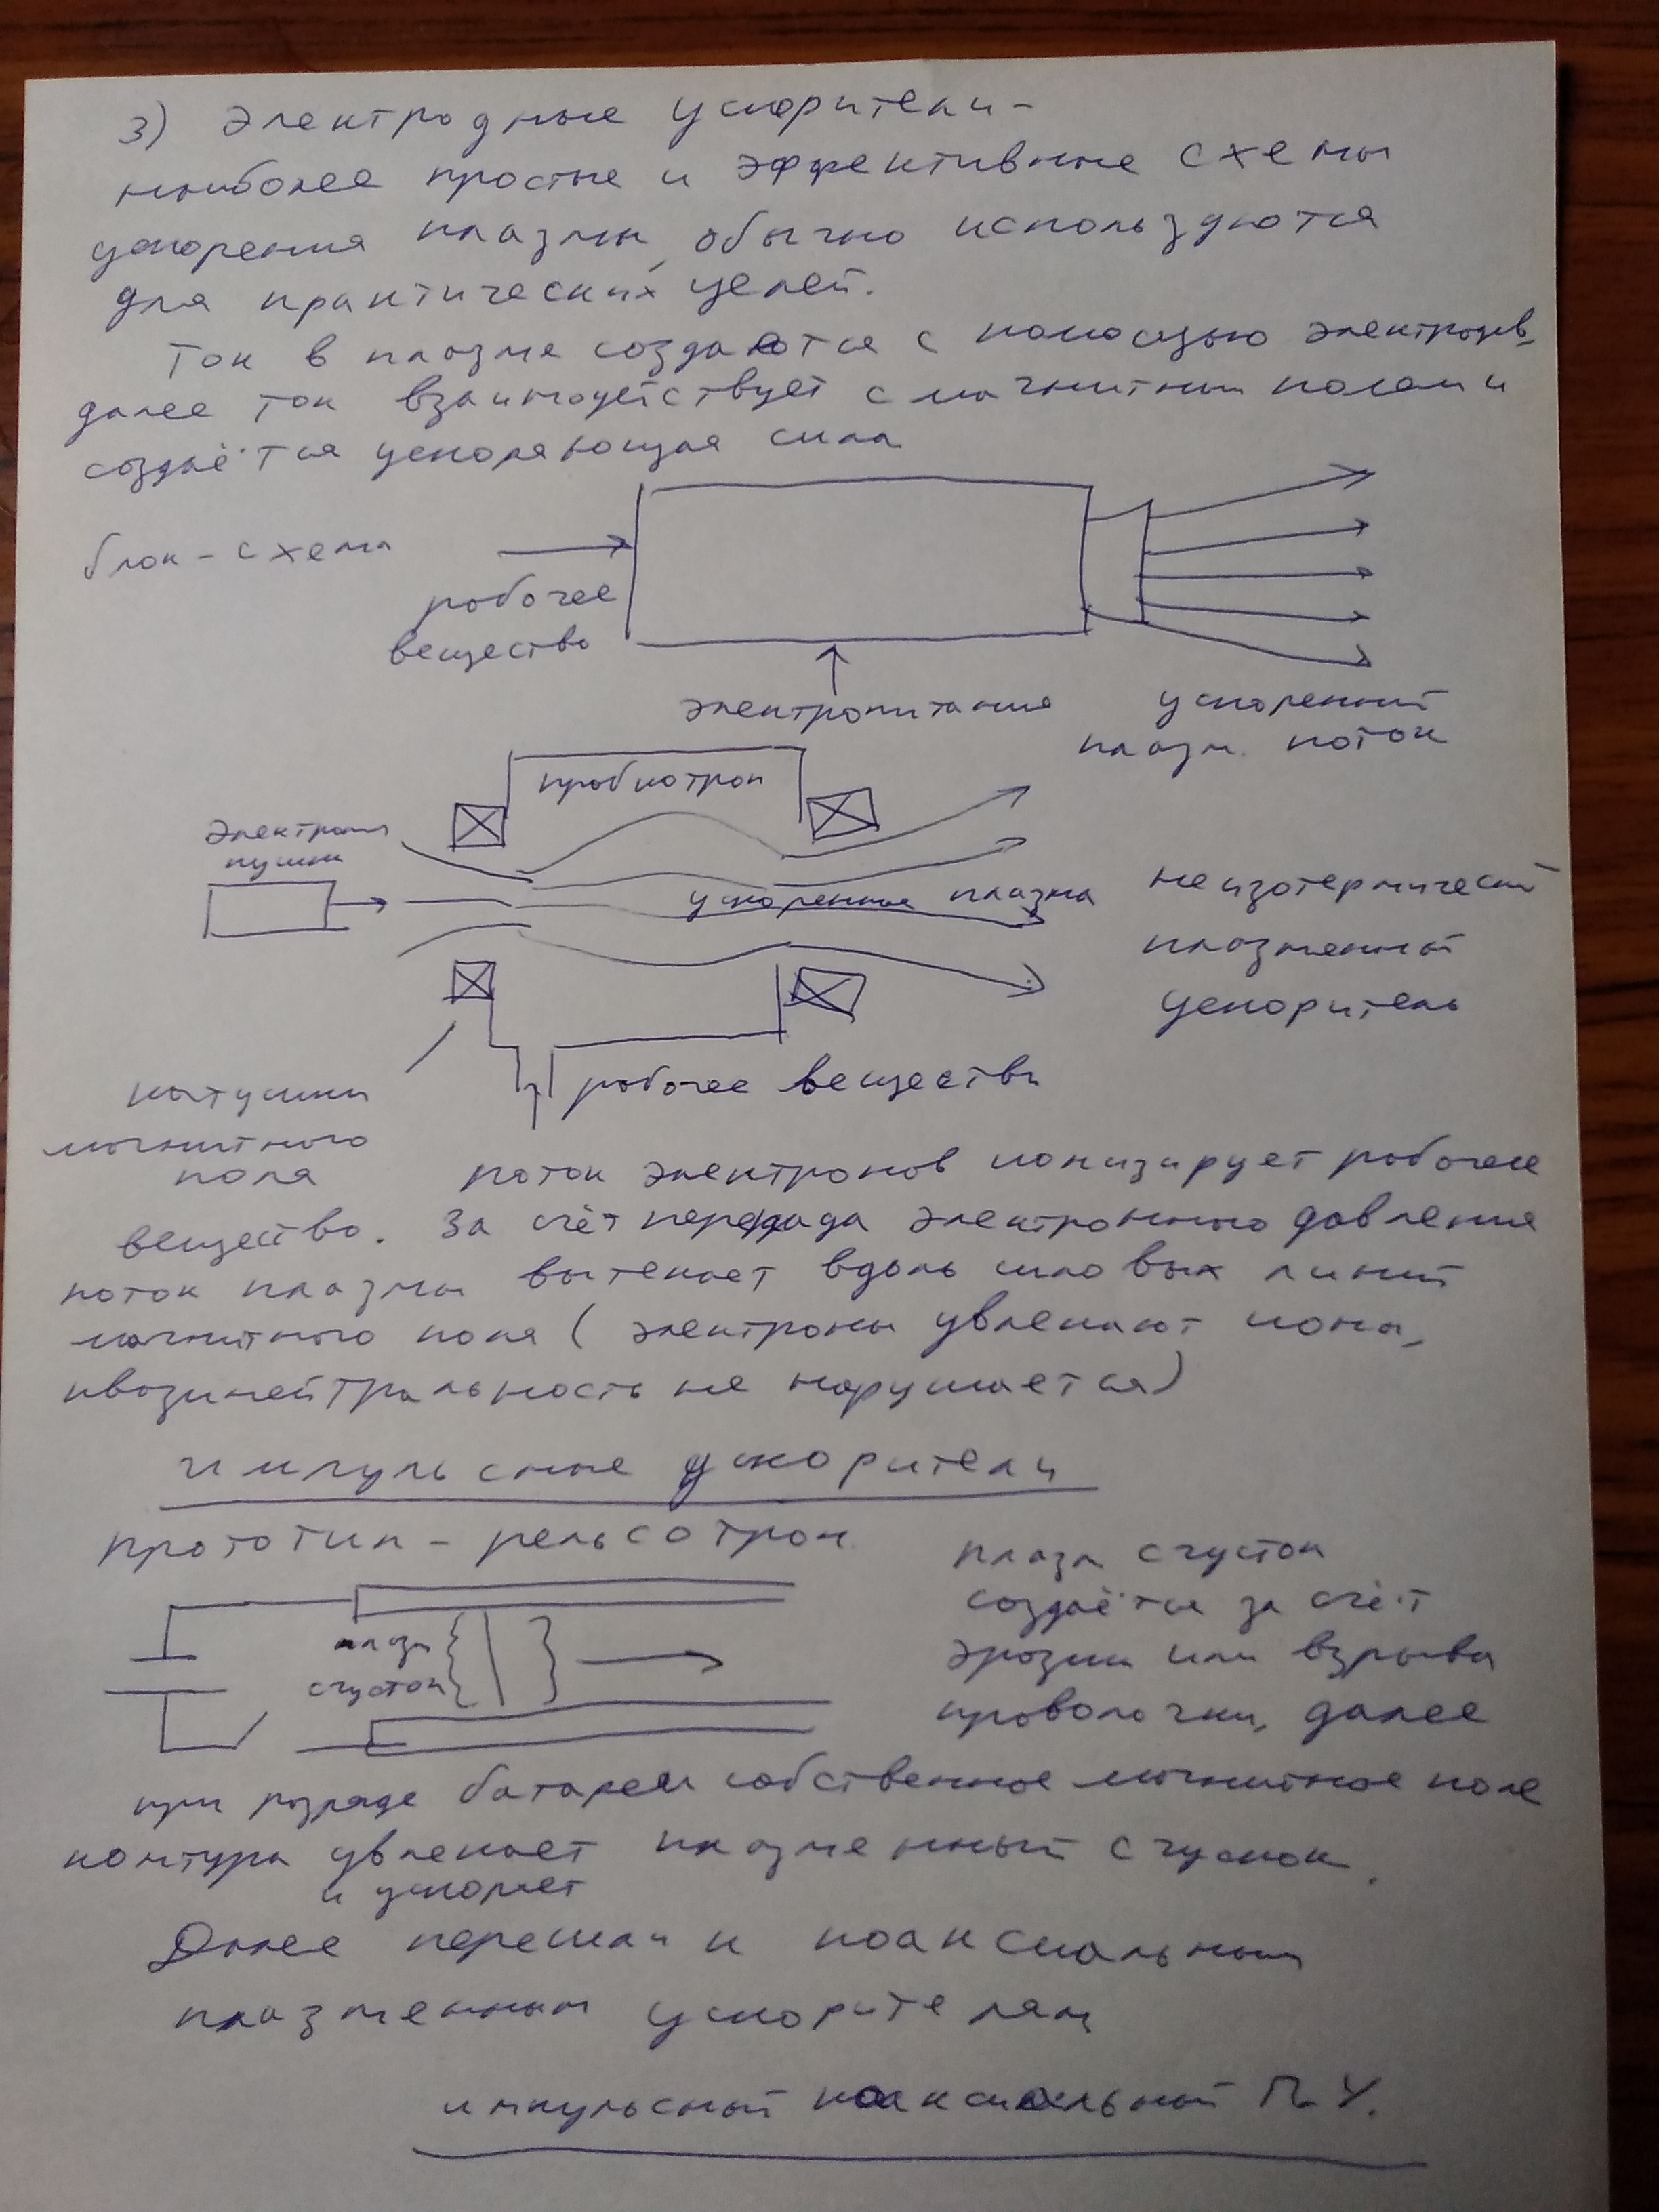 3) Электродные ускорители -
наиболее простые и эффективные схемы
ускорения плазмы, обычно используются
для практических целей.
Ток в плазме создаются с помощью электродов,
далее ток взаимодействует с магнитным полем и
создаётся ускоряющая сила
блок-схема
рабочее
вещество
электропитание
ускоренный
плазм. поток
пробкотрон
электронная
пушка
ускоренные плазма
неизотермический
плазменный
ускоритель
катушки
магнитного
поля
рабочее вещество
поток электронов ионизирует рабочее
вещество. За счёт перепада электронного давления
поток плазмы вытекает вдоль силовых линий
магнитного поля (электроны увлекают ионы,
квазинейтральность не нарушается)
импульсные ускорители
прототип - рельсотрон
плазм сгусток
создаётся за счёт
эрозии или взрыва
проволочки, далее
плазм
сгусток
при разряде батареи собственное магнитное поле
контура увлекает плазменный сгусток.
и ускоряет
Далее перешли к коаксиальным
плазменным ускорителям
импульсный коаксиальный П.У.